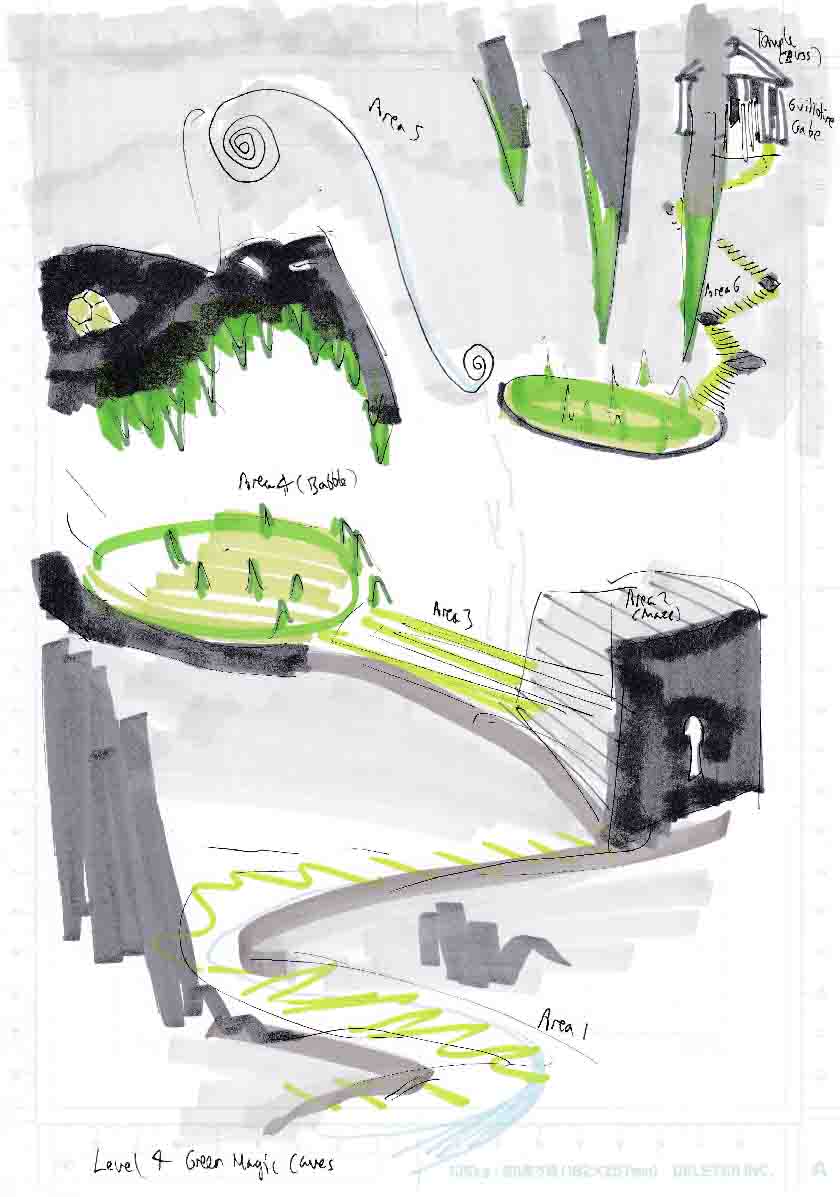 Temple
(Boss)
Guillotine
Gabe
Area 5
Area 6
Area 4 (Babble)
Area 3
Area 2
(Maze)
Area 1
Level 4 Green Magic Caves
DELETER INC.
A